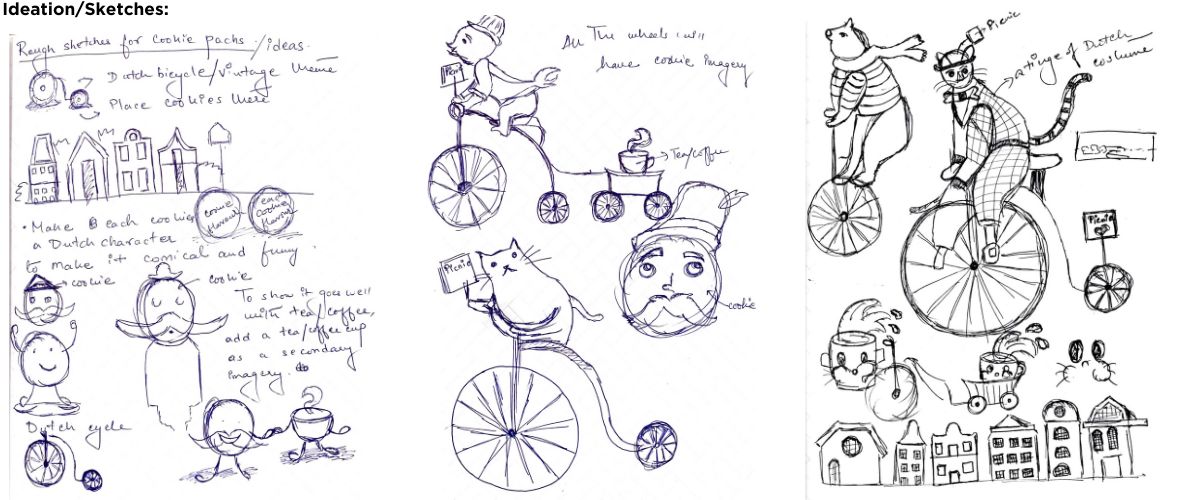 Ideation/Sketches:
Rough sketches for cookie packs / ideas.
Dutch bicycle/vintage theme
Place cookies here
cookie flavour
each cookie flavour
• Make each cookie
a Dutch character
to make it comical and funny.
cookie
cookie
To show it goes well
with tea/coffee,
add a tea/coffee cup
as a secondary
imagery.
Dutch cycle
Picnic
All The wheels will
have cookie imagery
Tea/coffee
Picnic
cookie
Picnic
a tinge of Dutch
costume
Picnic